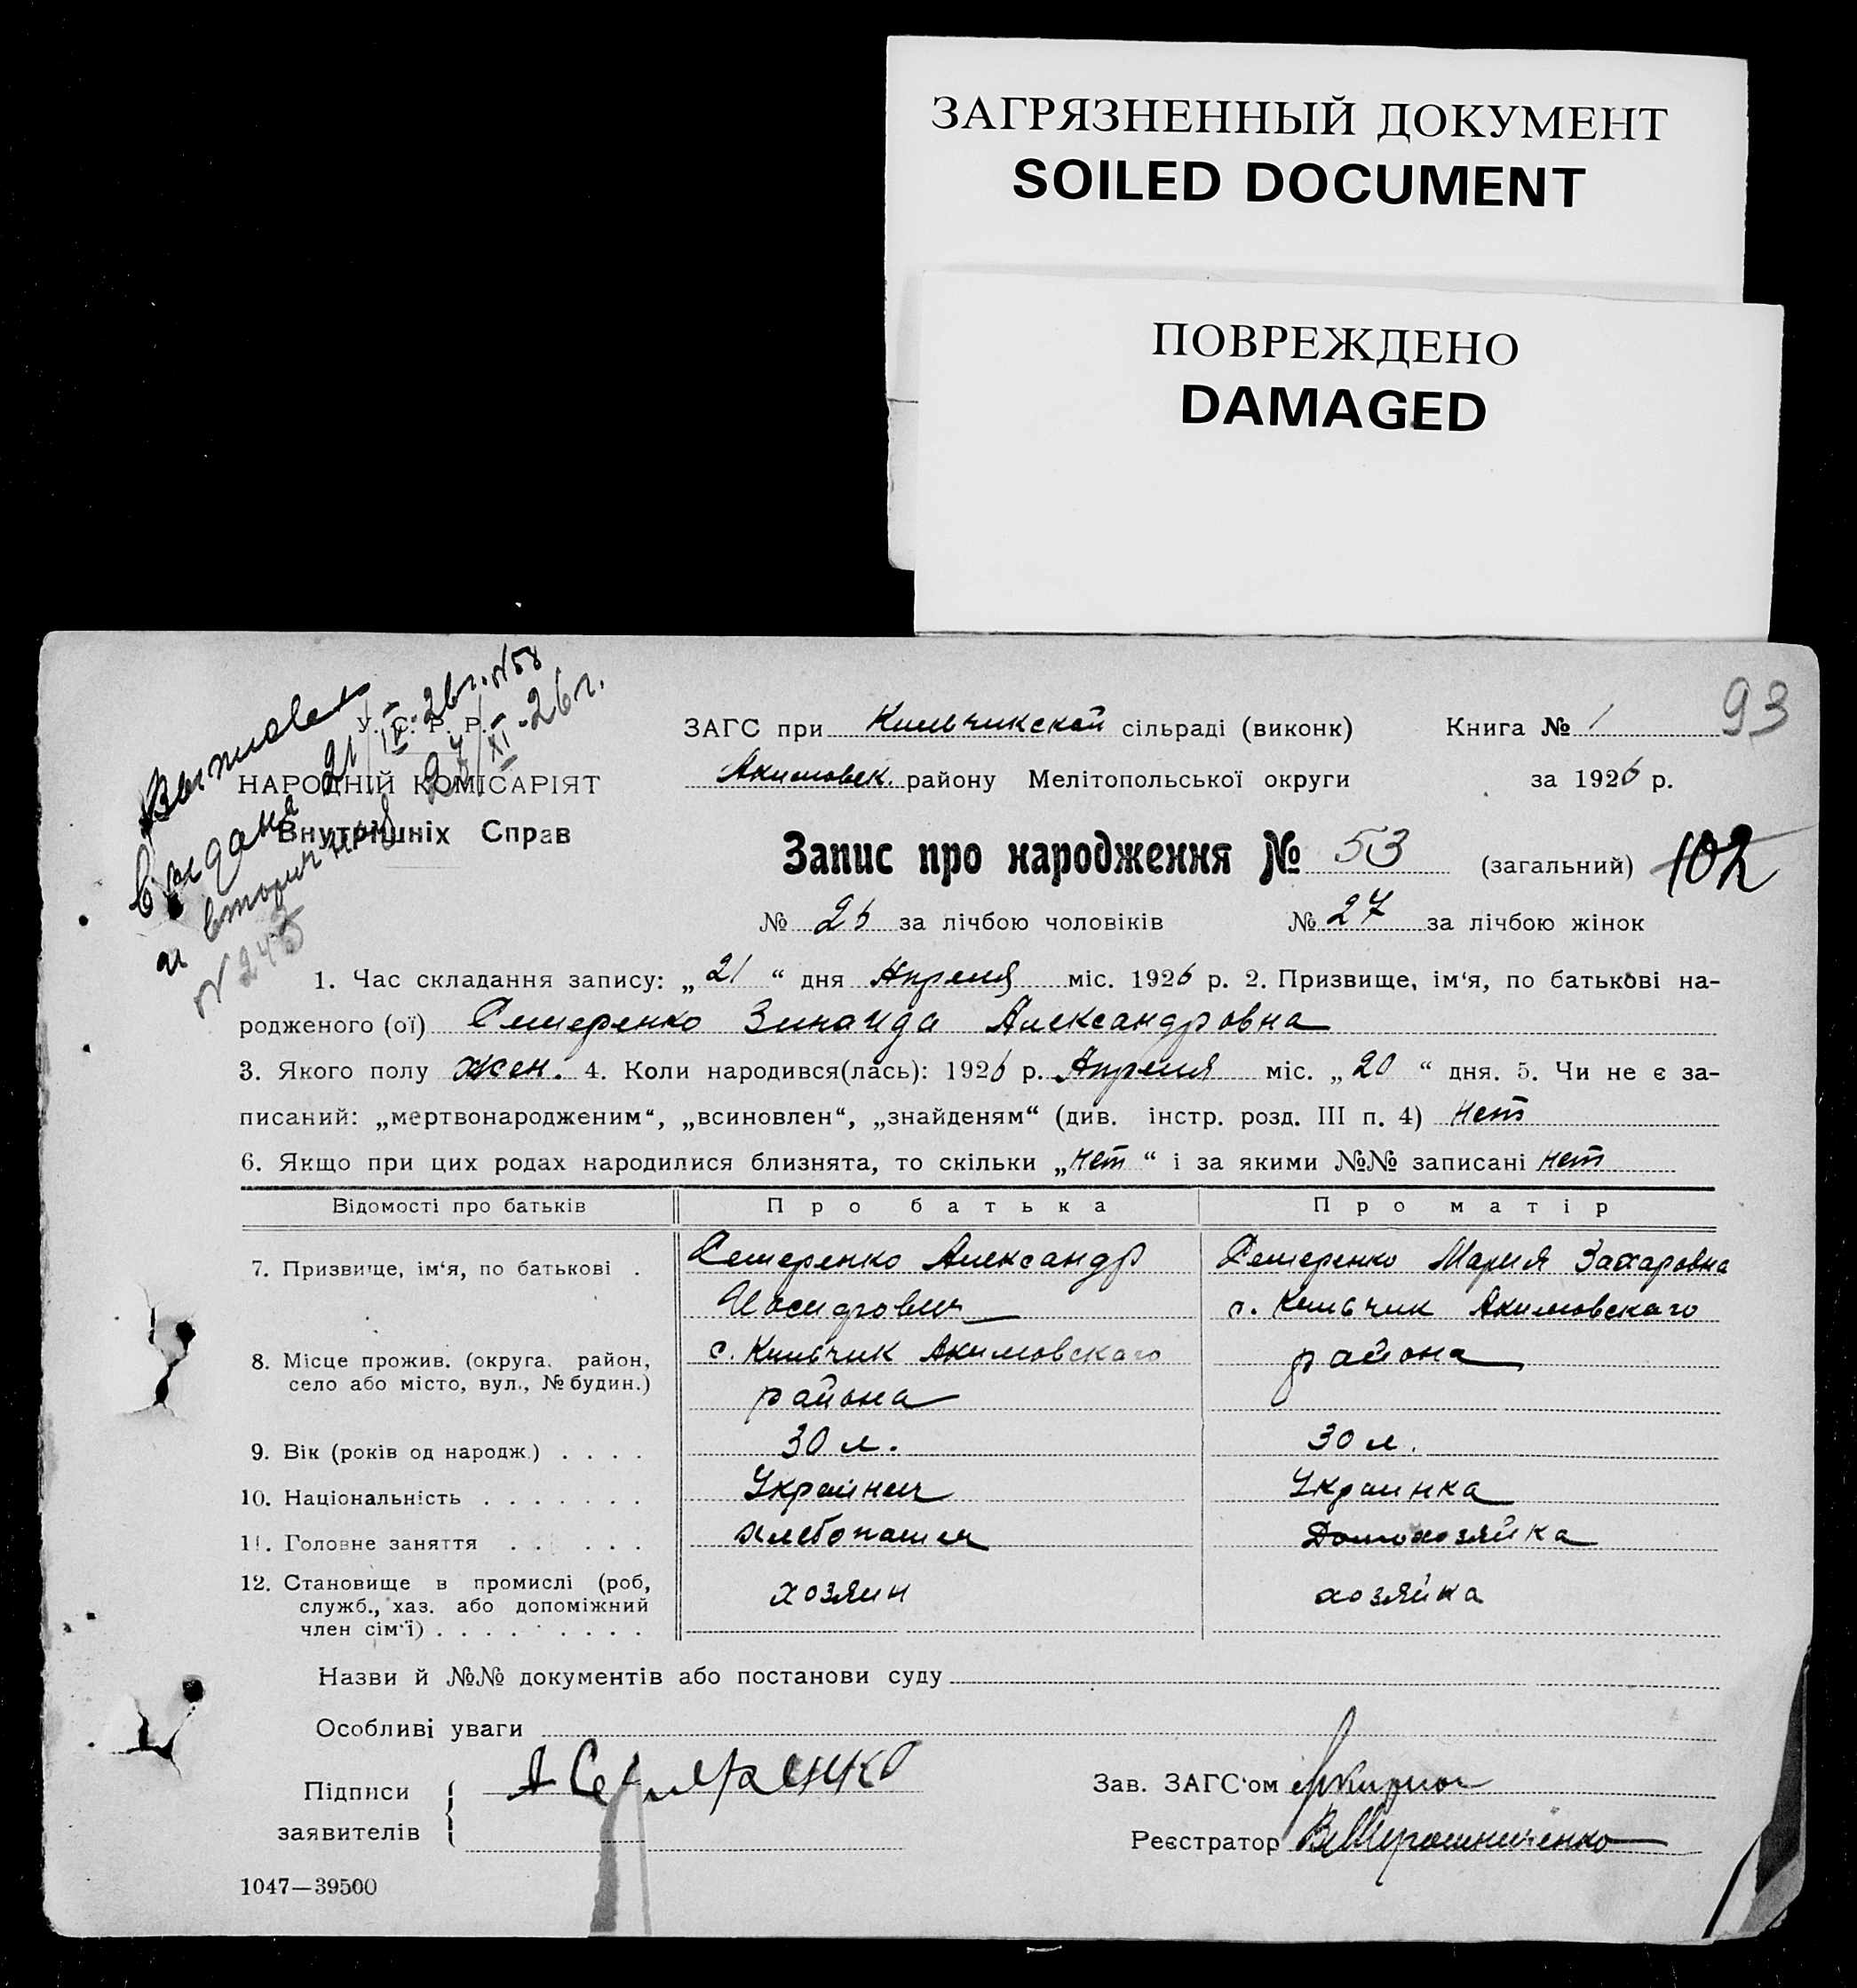 ЗАГРЯЗНЕННЫЙ ДОКУМЕНТ
SOILED DOCUMENT
ПОВРЕЖДЕНО
DAMAGED
93
У. С. Р. Р.
НАРОДНІЙ КОМІСАРІЯТ
Внутрішніх Справ
21/IV-26 г. №58
24/XI-26 г.
и вторичная
№ 243
ЗАГС при Кильчикской сільраді (виконк) Книга № 1
Акимовск. району Мелітопольської округи за 1926 р.
Запис про народження № 53 (загальний) 102
№ 26 за лічбою чоловіків № 27 за лічбою жінок
1. Час складання запису: „21“ дня Апреля міс. 1926 р. 2. Призвище, ім‘я, по батькові на-
родженого (ої) Семеренко Зинаида Александровна
3. Якого полу жен. 4. Коли народився(лась): 1926 р. Апреля міс. „20“ дня. 5. Чи не є за-
писаний: „мертвонародженим“, „всиновлен“, „знайденям“ (див. інстр. розд. III п. 4) нет
6. Якщо при цих родах народилися близнята, то скільки „нет“ і за якими №№ записані нет
Відомості про батьків Про батька Про матір
7. Призвище, ім‘я, по батькові . Семеренко Александр Семеренко Мария Захаровна
с. Кильчик Акимовскаго
8. Місце прожив. (округа. район, с. Кильчик Акимовскаго района
село або місто, вул., № будин.) района
9. Вік (років од народж.) . . . . 30 л. 30 л.
10. Національність . . . . . . . Украинец Украинка
11. Головне заняття . . . . . . Хлебопашец Домохозяйка
12. Становище в промислі (роб, хозяин хозяйка
служб., хаз. або допоміжний
член сім‘ї) . . . . . . . . .
Назви й №№ документів або постанови суду
Особливі уваги
Підписи А Семеренко Зав. ЗАГС‘ом
заявителів Реєстратор
1047—39500